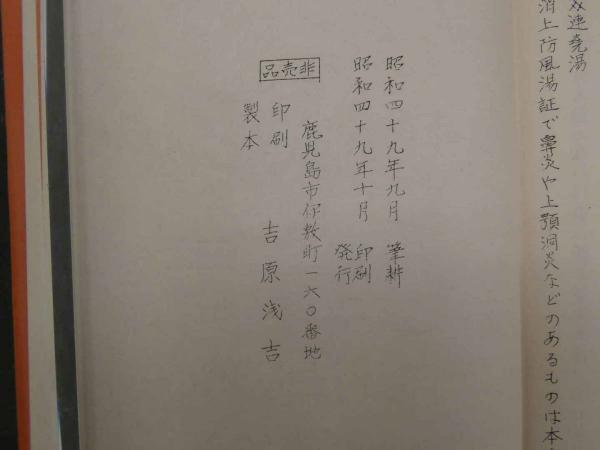 双連発湯
消上防風湯証で鼻炎や上顎洞炎などのあるものは本
昭和四十九年九月 筆耕
昭和四十九年十月 印刷 発行
鹿児島市伊敷町一六〇番地
印刷
製本
吉原浅吉
非売品